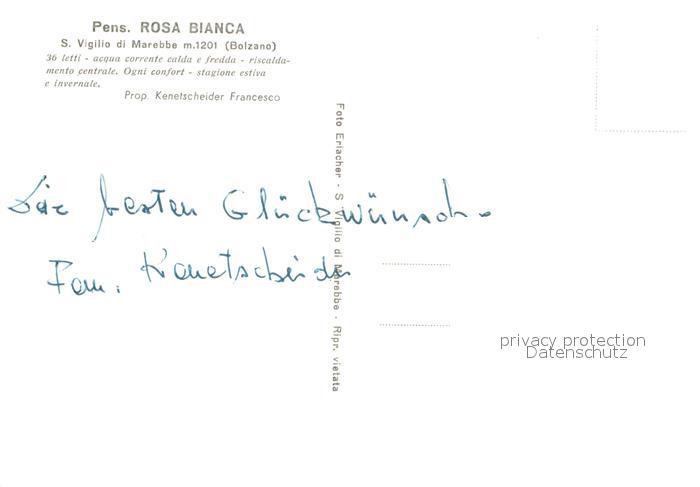 Pens. ROSA BIANCA
S. Vigilio di Marebbe m.1201 (Bolzano)
36 letti - acqua corrente calda e fredda - riscalda-
mento centrale. Ogni confort - stagione estiva
e invernale.
Prop. Kenetscheider Francesco
Die besten Glückwünsch-
Fam. Kenetscheider
Foto Erlacher - S. Vigilio di Marebbe - Ripr. vietata
privacy protection
Datenschutz